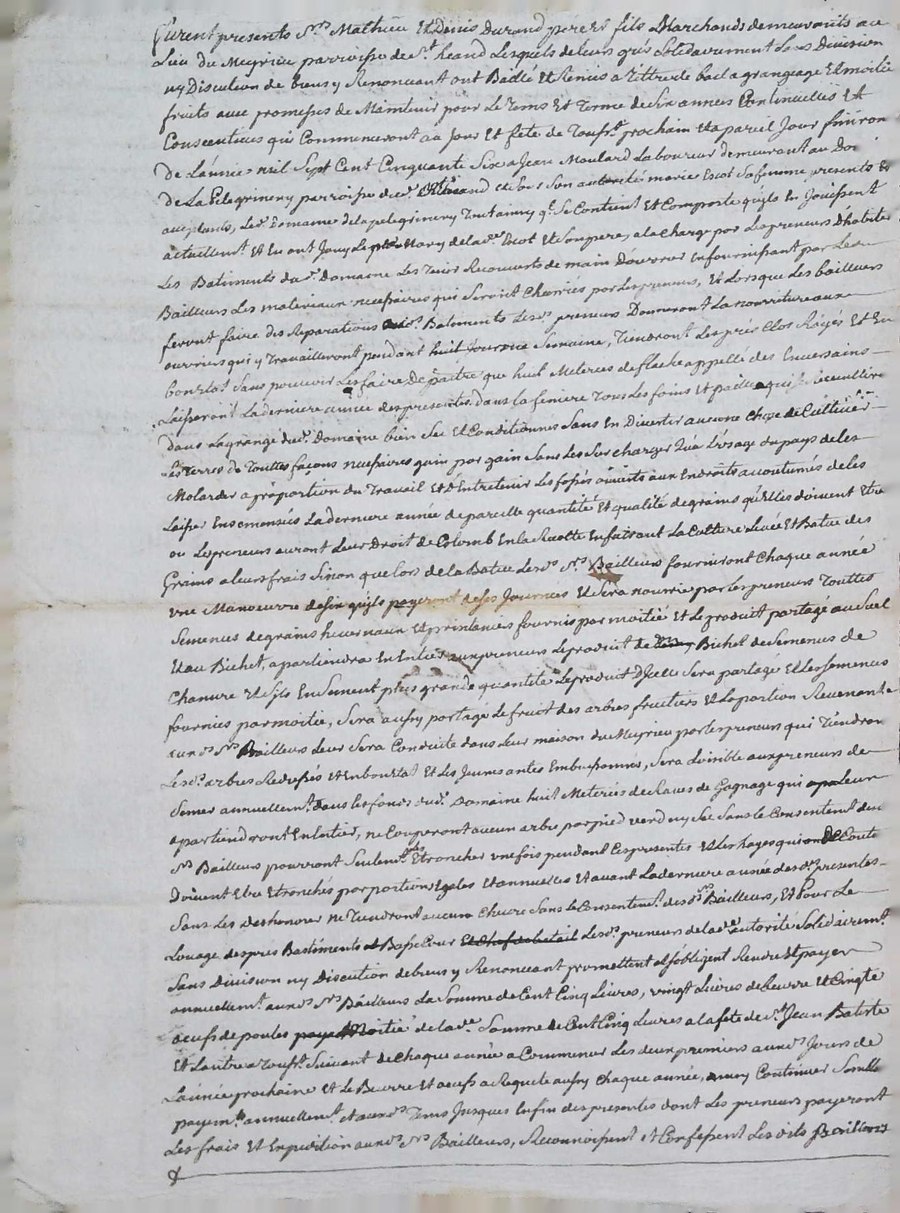 furent presents Srs Mathieu Et Denis Durand pere Et fils Marchands demeurants au
Lieu du Meyrieu parroisse de St heand Lesquels de leurs gré solidairement sans Division
ny Discution de biens y Renoncant ont Baillé Et Remis a tittre de bail a grangeage Et moitié
fruits avec promesses de Maintenir pour Le tems Et terme de Six années Continuelles Et
Consecutives qui Commenceront au Jour Et fete de Toussts prochain Et a pareil Jour finiron
De L'année mil Sept Cent Cinquante Six a Jean Moulard Laboureur demeurant au Do
De La Pelegrineny parroisse de St heand Et de son autorité marie Escot Sa femme presents Et
acceptants, Le dt Domaine de la pelegrineny tout ainsy qe Se Contient Et Comporte quils En Jouissent
actuellemt Et En ont Jouy Le mary de la dte Escot Et Son pere, a la Charge par Les preneurs D'habiter
Les Batiments du dt Domaine Les tenir Recouverts de main D'ouvrier En fournissant par Les
Bailleurs Les materiaux necessaires qui Seront Charriés par Les preneurs, Et Lorsque Les bailleurs
feront faire des Reparations aux dts Batiments Les dts preneurs Donneront La nourriture aux
ouvriers qui y Travailleront pendant huit Jours Semaine, Tiendront Les prés Clos Rayés Et En
bon Etat Sans pouvoir Les faire De paitre que huit Meterées de flache appellé des
Laisseront La derniere année des presentes dans La feniere Tous Les foins Et pailles qui
dans La grange du dt Domaine bien Sec Et Conditionnés Sans En Divertir aucune Chose de Cultiver
Les Terres de Touttes façons necessaires gain par gain Sans Les Surcharger L'usage du pays de Les
a proportion du Travail Et D'Entretenir Les fossés aux Endroits accoutumés de Les
Laisser Ensemencées La derniere année de pareille quantité Et qualité de grains qu'Elles doivent Etre
ou Les preneurs auront Leur Droit de Colomb En la Recolte En faisant La Culture Levée Et Batue des
Grains a leurs frais Sinon que Lors de la Batue Les dts Srs Bailleurs fourniront Chaque année
une Manoeuvre quils payeront de Ses Journées Et Sera nourrie par Les preneurs Touttes
Semences de grains hivernaux Et printaniers fournis par moitié Et Le produit partagé au Suel
Et au Bichet, apartiendra En Entier aux preneurs Le produit de Bichet de Semences de
Chanvre Et Sils En Sement plus grande quantité Le produit D'Icelle Sera partagé Et Les Semences
fournies par moitié, Sera aussy partagé Le fruit des arbres fruitiers Et La portion Revenante
aux dts Srs Bailleurs Leur Sera Conduite dans Leur maison du Meyrieu par Les preneurs qui Tiendron
Les dts arbres Et En bon Etat Et Les Jeunes antes Embuissonnés, Sera Loisible aux preneurs de
Semer annuellemt dans Les fonds du dt Domaine huit Meterées de Raves de Gagnage qui Leur
apartiendront En Entier, ne Couperont aucun arbre par pied verd ny Sec Sans Le Consentemt du
Srs Bailleurs pourront Seulemt Etroncher une fois pendant Les presentes Et Les hayes qui ont De Coutu
Doivent Etre Etronchés par portions Egales Et annuelles Et avant La derniere année des dts presentes
Sans Les deshonorer ne Tiendront aucun Chevre Sans Le Consentemt des dts Srs Bailleurs, Et Pour Le
Louage des prés Bastiments Basse Cour Et Les dts preneurs de la dte autorité Solidairemt
Sans Division ny Discution de biens y Renoncant promettent Et S'obligent Rendre Et payer
annuellemt aux dts Srs Bailleurs La Somme de Cent Cinq Livres, vingt Livres de beurre Et Cinqte
oeufs de poules Moitié de la dte Somme de Cent Cinq Livres a la fete de St Jean Batiste
Et L'autre a Toussts Suivant de Chaque année a Commencer Les deux premiers aux dts Jours de
L'année prochaine Et Le Beurre Et oeufs a Requete aussy Chaque année, Continuer Semble
payemts annuellemt Et aux dts Tems Jusques En fin des presentes dont Les preneurs payeront
Les frais Et Expedition aux dts Srs Bailleurs, Reconnoissent Et Confessent Les dits Bailleurs